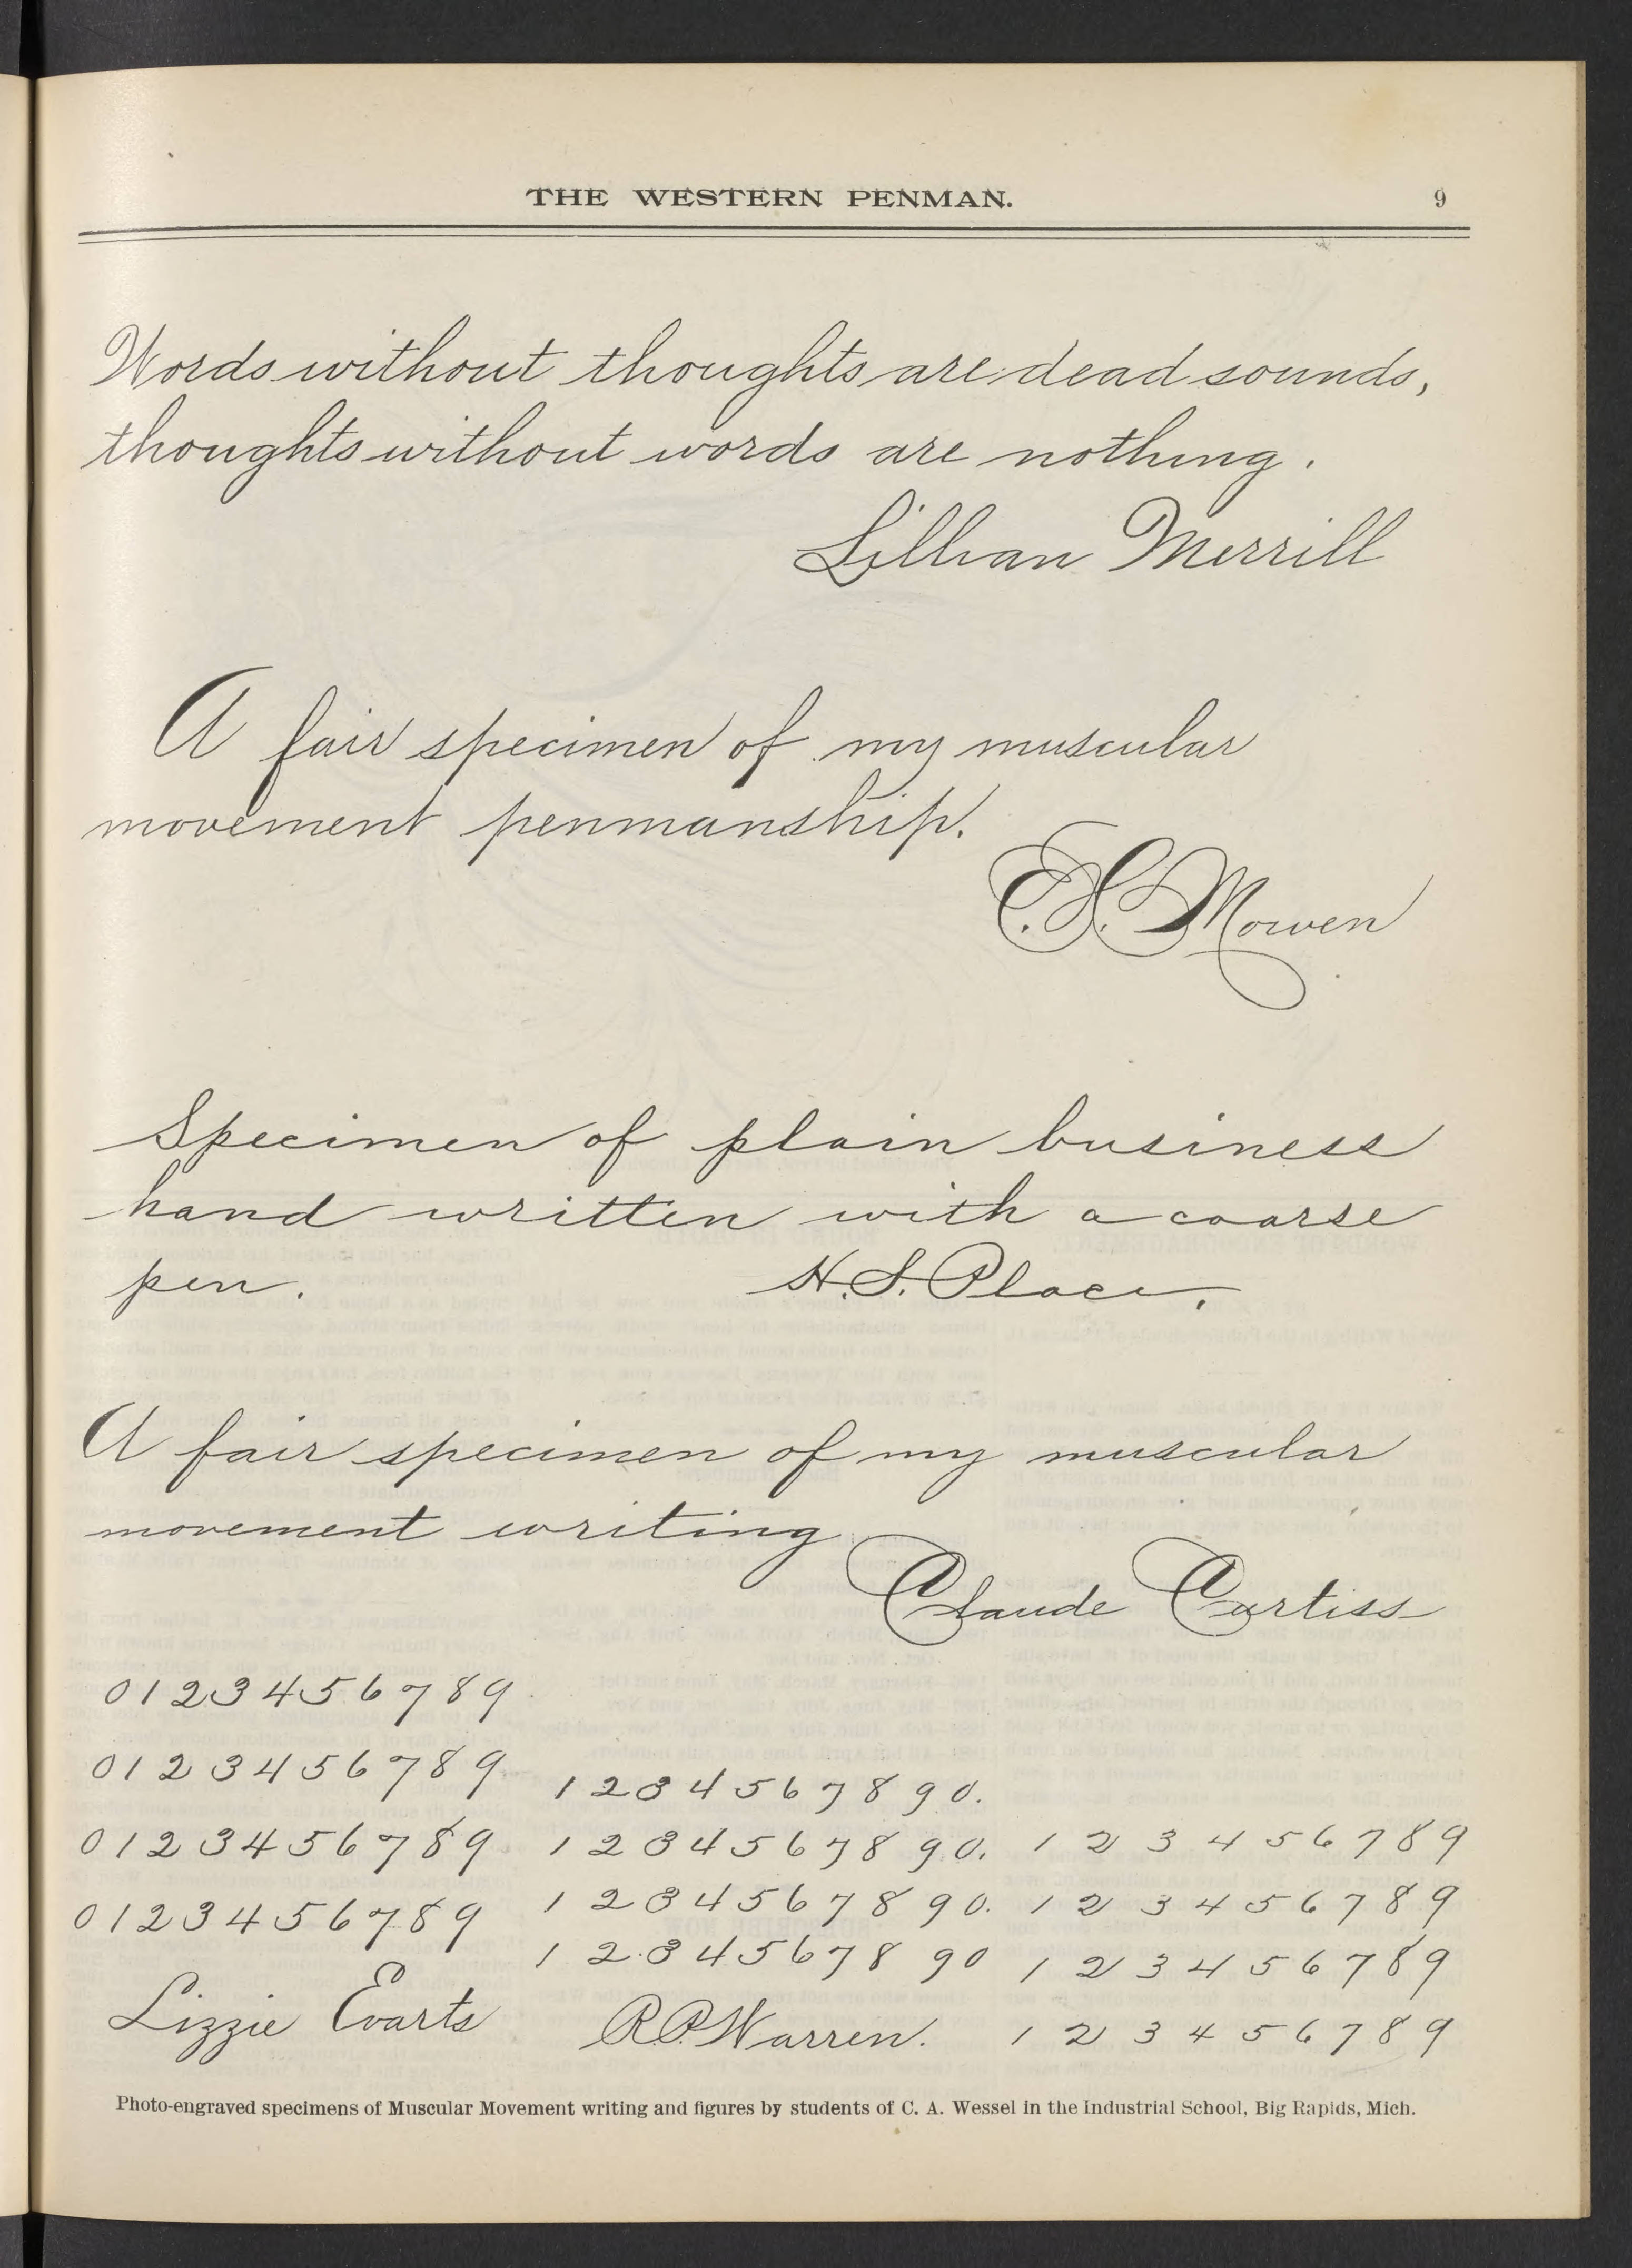 THE WESTERN PENMAN.
9
Words without thoughts are dead sounds,
thoughts without words are nothing.
Lillian Merrill
A fair specimen of my muscular
movement penmanship.
E. S. Mowen
Specimen of plain business
hand written with a coarse
pen.
H. S. Place.
A fair specimen of my muscular
movement writing
Claude Curtiss
0 1 2 3 4 5 6 7 8 9
0 1 2 3 4 5 6 7 8 9
0 1 2 3 4 5 6 7 8 9
0 1 2 3 4 5 6 7 8 9
Lizzie Evarts
1 2 3 4 5 6 7 8 9 0.
1 2 3 4 5 6 7 8 9 0.
1 2 3 4 5 6 7 8 9 0.
1 2 3 4 5 6 7 8 9 0
R. P. Warren.
1 2 3 4 5 6 7 8 9
1 2 3 4 5 6 7 8 9
1 2 3 4 5 6 7 8 9
1 2 3 4 5 6 7 8 9
Photo-engraved specimens of Muscular Movement writing and figures by students of C. A. Wessel in the Industrial School, Big Rapids, Mich.